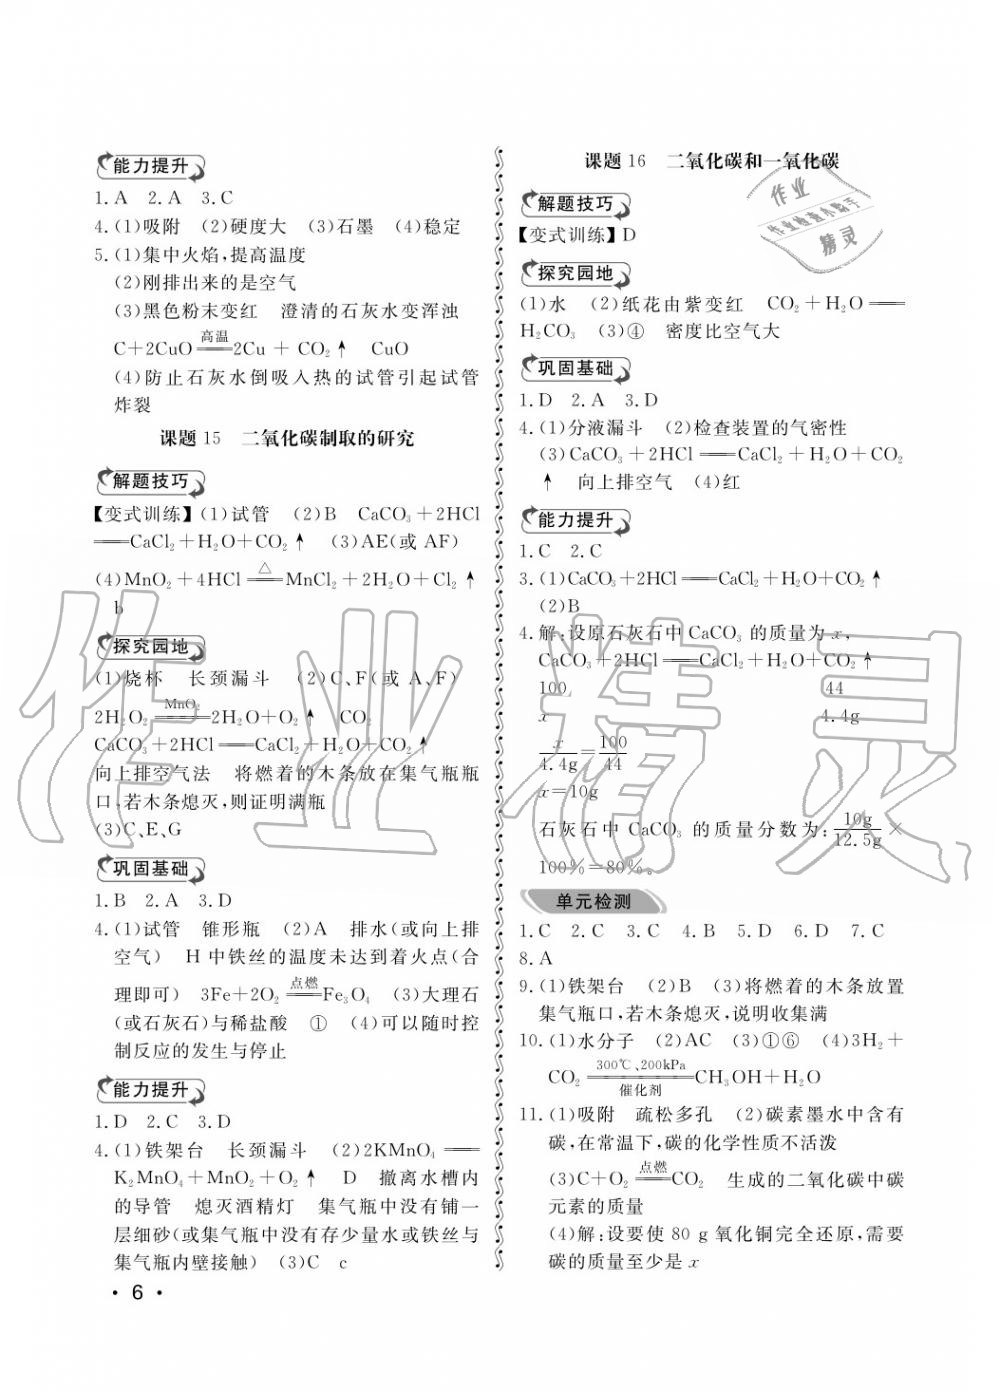 能力提升
1.A 2.A 3.C
4.(1)吸附 (2)硬度大 (3)石墨 (4)稳定
5.(1)集中火焰,提高温度
(2)刚排出来的是空气
(3)黑色粉末变红 澄清的石灰水变浑浊
C+2CuO═高温═2Cu + CO₂↑ CuO
(4)防止石灰水倒吸入热的试管引起试管
炸裂
课题 15 二氧化碳制取的研究
解题技巧
【变式训练】(1)试管 (2)B CaCO₃+2HCl
═══CaCl₂+H₂O+CO₂↑ (3)AE(或 AF)
(4)MnO₂+4HCl═△═MnCl₂+2H₂O+Cl₂↑
b
探究园地
(1)烧杯 长颈漏斗 (2)C、F(或 A、F)
2H₂O₂═MnO₂═2H₂O+O₂↑ CO₂
CaCO₃+2HCl═══CaCl₂+H₂O+CO₂↑
向上排空气法 将燃着的木条放在集气瓶瓶
口,若木条熄灭,则证明满瓶
(3)C、E、G
巩固基础
1.B 2.A 3.D
4.(1)试管 锥形瓶 (2)A 排水(或向上排
空气) H 中铁丝的温度未达到着火点(合
理即可) 3Fe+2O₂═点燃═Fe₃O₄ (3)大理石
(或石灰石)与稀盐酸 ① (4)可以随时控
制反应的发生与停止
能力提升
1.D 2.C 3.D
4.(1)铁架台 长颈漏斗 (2)2KMnO₄═══
K₂MnO₄+MnO₂+O₂↑ D 撤离水槽内
的导管 熄灭酒精灯 集气瓶中没有铺一
层细砂(或集气瓶中没有存少量水或铁丝与
集气瓶内壁接触) (3)C c
· 6 ·
课题 16 二氧化碳和一氧化碳
解题技巧
【变式训练】D
探究园地
(1)水 (2)纸花由紫变红 CO₂+H₂O═══
H₂CO₃ (3)④ 密度比空气大
巩固基础
1.D 2.A 3.D
4.(1)分液漏斗 (2)检查装置的气密性
(3)CaCO₃+2HCl═══CaCl₂+H₂O+CO₂
↑ 向上排空气 (4)红
能力提升
1.C 2.C
3.(1)CaCO₃+2HCl═══CaCl₂+H₂O+CO₂↑
(2)B
4.解:设原石灰石中 CaCO₃ 的质量为 x,
CaCO₃+2HCl═══CaCl₂+H₂O+CO₂↑
100 44
x 4.4g
x/4.4g=100/44
x=10g
石灰石中 CaCO₃ 的质量分数为:10g/12.5g×
100%=80%。
单元检测
1.C 2.C 3.C 4.B 5.D 6.D 7.C
8.A
9.(1)铁架台 (2)B (3)将燃着的木条放置
集气瓶口,若木条熄灭,说明收集满
10.(1)水分子 (2)AC (3)①⑥ (4)3H₂+
CO₂═300℃、200kPa/催化剂═CH₃OH+H₂O
11.(1)吸附 疏松多孔 (2)碳素墨水中含有
碳,在常温下,碳的化学性质不活泼
(3)C+O₂═点燃═CO₂ 生成的二氧化碳中碳
元素的质量
(4)解:设要使 80 g 氧化铜完全还原,需要
碳的质量至少是 x
作业
作业检查小助手
精灵
作业精灵